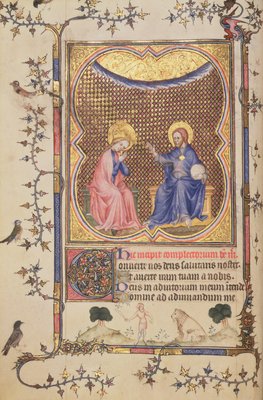 Hic incipit complectorium
Conuerte nos deus salutaris noster.
Et auerte iram tuam a nobis.
Deus in adiutorium meum intende
Domine ad adiuuandum me